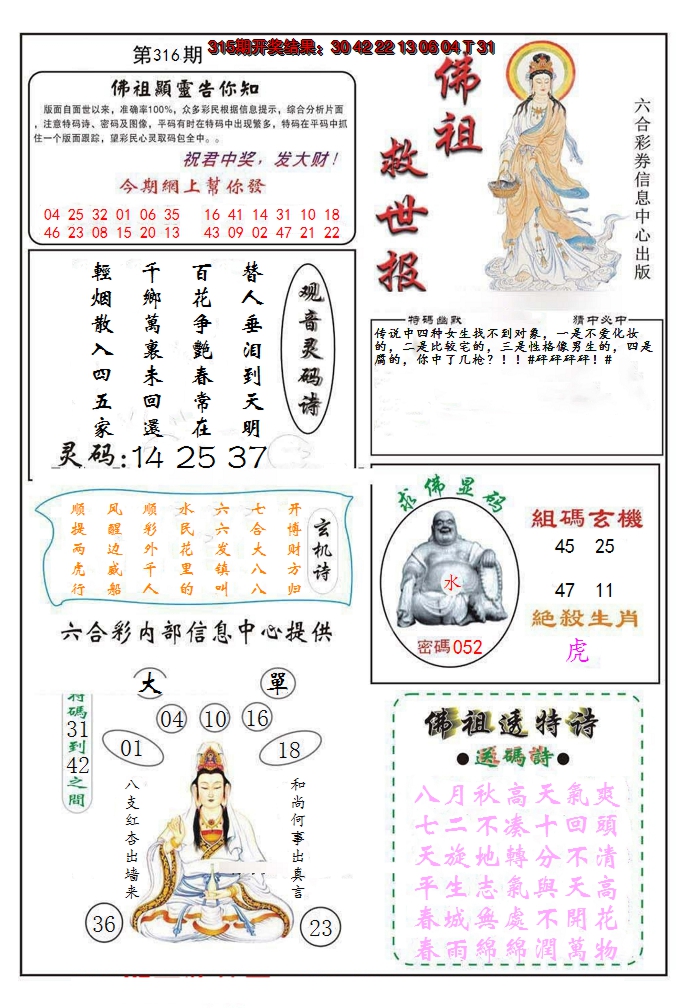 第316期
315期开奖结果：30 42 22 13 06 04 T 31
佛祖顯靈告你知
版面自面世以来，准确率100%，众多彩民根据信息提示，综合分析片面
，注意特码诗、密码及图像，平码有时在特码中出现繁多，特码在平码中抓
住一个版面跟踪，望彩民心灵取码包全中。。
祝君中奖，发大财！
今期網上幫你發
04 25 32 01 06 35 16 41 14 31 10 18
46 23 08 15 20 13 43 09 02 47 21 22
佛祖
救世报
六合彩券信息中心出版
观音灵码诗
替人垂泪到天明
百花争艷春常在
千鄉萬裏未回還
輕烟散入四五家
灵码:14 25 37
特碼幽默
猜中必中
传说中四种女生找不到对象，一是不爱化妆
的，二是比较宅的，三是性格像男生的，四是
腐的，你中了几枪？！！#砰砰砰砰！#
玄机诗
开博财方归
七合大八八
六六发镇叫
水民花里的
顺彩外千人
风醒边威船
顺提两虎行
六合彩内部信息中心提供
求佛显码
水
密碼052
組碼玄機
45 25
47 11
絶殺生肖
虎
大
單
特碼31到42之間
04
10
16
01
18
八支红杏出墙来
和尚何事出真言
36
23
佛祖透特诗
●送碼詩●
八月秋高天氣爽
七二不凑十回頭
天旋地轉分不清
平生志氣與天高
春城無處不開花
春雨綿綿潤萬物